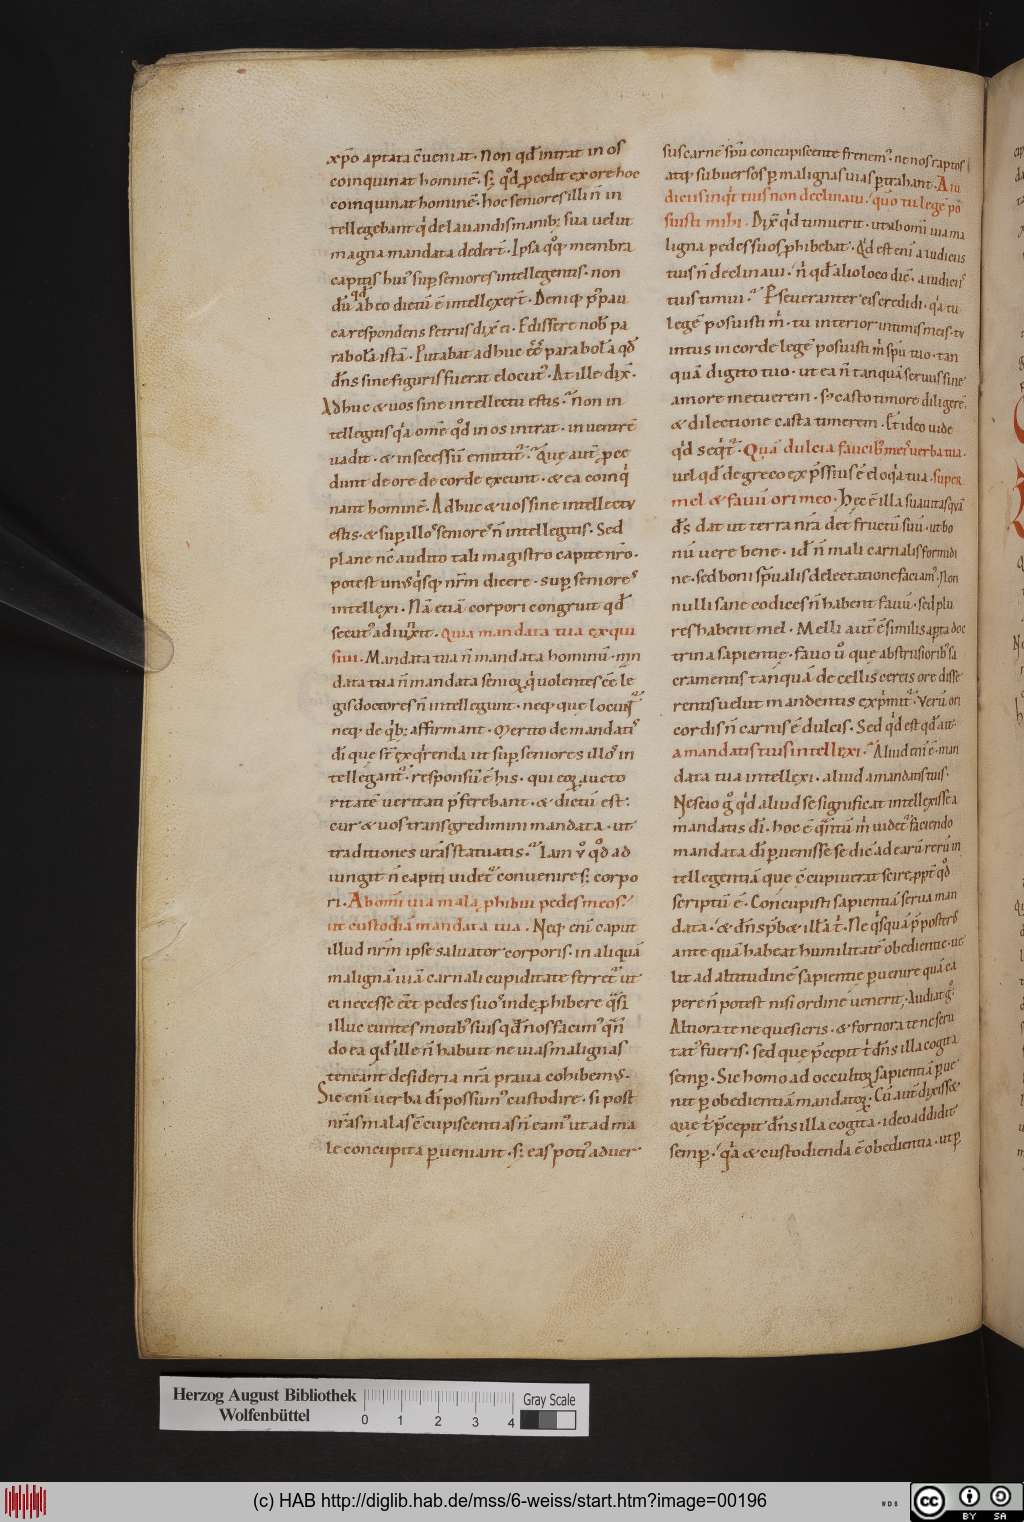 xp̄o aptata c̄ueniat. Non qd̄ intrat in os
coinquinat hominē. s; qd̄ p̄cedit ex ore hoc
coinquinat hominē. hoc seniores illi n̄ in
tellegebant qi de lauandis manib; sua uelut
magna mandata dedert̄. Ipsa qq̄ membra
capitis hui' sup seniores intellegentis. non
dū qd̄ ab eo dictū ē intellexert̄. Deniq; p' pau
ca respondens Petrus dix̄ ei. Edissere nob̄ pa
rabolā istā. Putabat adhuc ēē parabolā qd̄
dn̄s sine figuris fuerat elocut'. At ille dix̄.
Adhuc & uos sine intellectu estis. n̄ non in
tellegitis qa om̄e qd̄ in os intrat. in uentrē
uadit. & in secessū emittit. Que aut̄ p̄ce
dunt de ore de corde exeunt. & ea coinq
nant hominē. Adhuc & uos sine intellectu
estis. & sup illos seniores n̄ intellegitis. Sed
plane nc̄ audito tali magistro capite nr̄o.
potest unusqsq; nr̄m dicere. sup seniores
intellexi. Nā etiā corpori congruit qd̄
secut' adiunxit. Quia mandata tua exqui
siui. Mandata tua n̄ mandata hominū. mn
data tua n̄ mandata senior. q uolentes ēē le
gis doctores n̄ intellegunt. neq; que locunt̄
neq; de qb; affirmant. Merito de mandatis
di que st̄ exqrenda ut sup seniores illos in
tellegant'. responsū ē his. qui eor aucto
ritatē ueritati p̄ferebant. & dictū est.
cur & uos transgredimini mandata. ut
traditiones ur̄as statuatis. Iam u° qd̄ ad
iungit n̄ capiti uidet' conuenire s; corpo
ri. Ab om̄i uia mala phibui pedes meos.
ut custodiā mandata tua. Neq; eni caput
illud nr̄m ipse saluator corporis. in aliquā
malignā uiā carnali cupiditate ferret' ut
ei necesse eēt pedes suos inde phibere qsi
illuc euntes motib' suis qd̄ nos facim' qn̄
do ea qd̄ ille n̄ habuit ne uias malignas
teneant desideria nr̄a praua cohibemus.
Sic eni uerba di possum' custodire. si post
nr̄as malas c̄cupiscentias n̄ eam' ut ad ma
le concupita pueniant. s; eas poti' aduer
sus carnē sp̄u concupiscente frenem'. ne nos raptos
atq; subuersos p malignas uias ptrahant. A iu
diciis inqt tuis non declinaui. qm̄ tu legē po
suisti mihi. Dix̄ qd̄ timuerit. ut ab om̄i uia ma
ligna pedes suos phibebat. Qd̄ est eni a iudiciis
tuis n̄ declinaui. n̄ qd̄ alio loco dic̄. a iudiciis
tuis timui. Pseueranter eis credidi. qa tu
legē posuisti m'. tu interior intimis meis. tu
intus in corde legē posuisti m' sp̄u tuo. tan
quā digito tuo. ut ea n̄ tanquā seruus sine
amore metuerem. s; casto timore diligerē.
& dilectione casta timerem. Et ideo uide
qd̄ seqt'. Quā dulcia faucib' meis uerba tua.
uel qd̄ de greco exp̄ssius ē eloqa tua. super
mel & fauū ori meo. Hec ē illa suauitas quā
ds̄ dat ut terra nr̄a det fructū suū. ut bo
nū uere bene. id n̄ mali carnalis formidi
ne. sed boni sp̄ualis delectatione faciam'. Non
nulli sane codices n̄ habent fauū. sed plu
res habent mel. Melli aut̄ ē similis apta doc
trina sapientie. fauo u° que abstrusiorib' sa
cramentis tanquā de cellis cereis ore disse
rentis uelut mandentis exp̄mit'. Verū ori
cordis n̄ carnis ē dulcis. Sed qd̄ est qd̄ ait.
a mandatis tuis intellexi. Aliud eni ē. man
data tua intellexi. aliud a mandatis tuis.
Nescio g° qd̄ aliud se significat intellexisse a
mandatis di. hoc ē qntū m' uidet' faciendo
mandata di puenisse se dic̄ ad earū rerū in
tellegentiā que c̄cupiuerat scire. ppt̄ qd̄
scriptū ē. Concupisti sapientiā serua man
data. & dn̄s p̄b& illā t'. Ne qsquā p̄postero
ante quā habeat humilitatē obedientie. ue
lit ad altitudinē sapientie puenire quā ca
pere n̄ potest nisi ordine uenerit. Audiat g°.
Altiora te ne quesieris. & fortiora te ne scru
tat' fueris. sed que p̄cepit t' dn̄s illa cogita
semp. Sic homo ad occultor sapientiā pue
nit p obedientiā mandator. Cū aut̄ dixisset
que t' p̄cepit dn̄s illa cogita. ideo addidit
semp. qa & custodienda ē obedientia. ut p
Herzog August Bibliothek
Wolfenbüttel
0 1 2 3 4
Gray Scale
(c) HAB http://diglib.hab.de/mss/6-weiss/start.htm?image=00196
WDB
cc BY SA